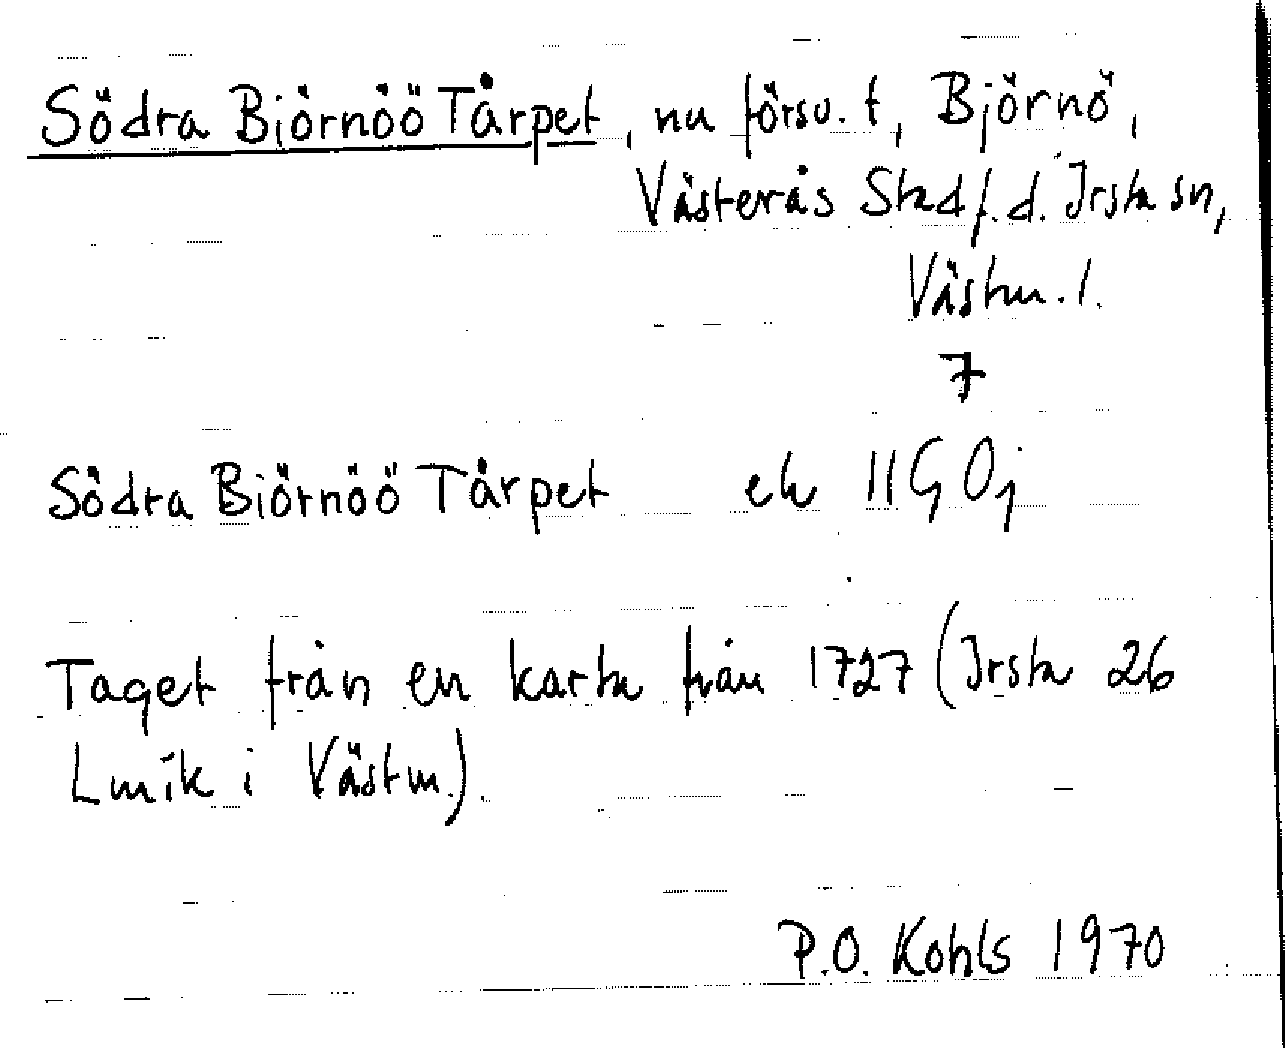 Södra Biörnöö Tårpet, nu försv. t, Björnö,
Västerås Stad f.d. Irsta sn,
Västm. l.
7
Södra Biörnöö Tårpet ek 11G 0j
Taget från en karta från 1727 (Irsta 26
Lmík i Västm.).
P.O. Kohls 1970